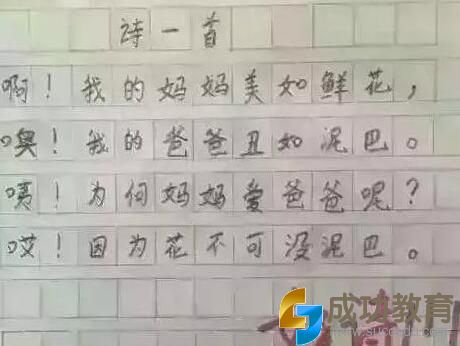 诗一首
啊！我的妈妈美如鲜花，
噢！我的爸爸丑如泥巴。
咦！为何妈妈爱爸爸呢？
哎！因为花不可没泥巴。
成功教育